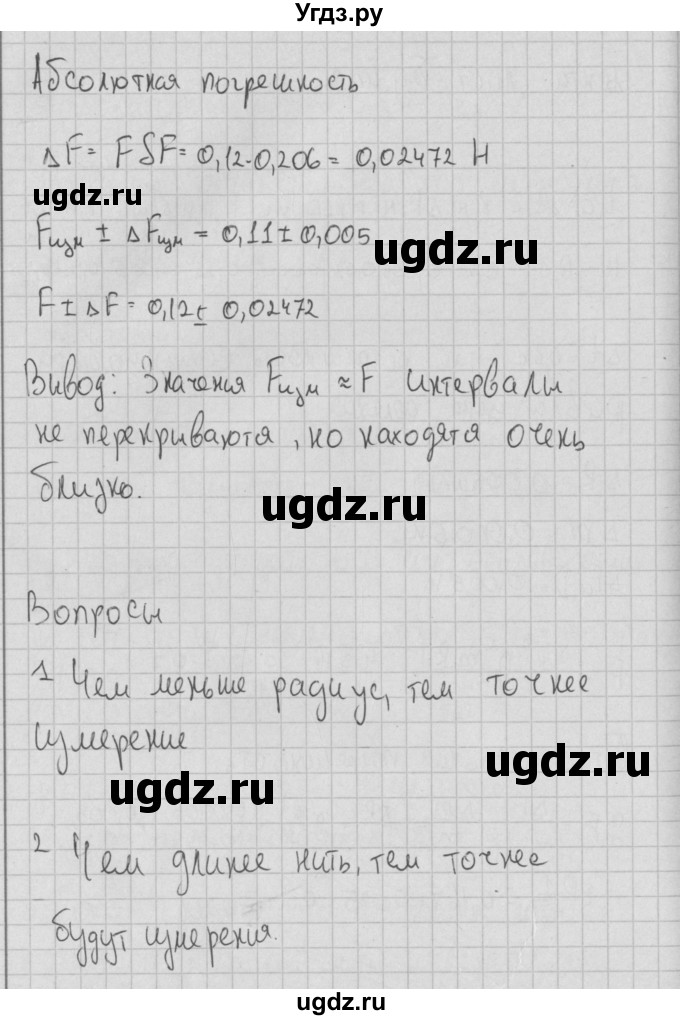 Угдз.ру
Абсолютная погрешность
ΔF = FδF = 0,12·0,206 = 0,02472 Н
ugdz.ru
Fизм ± ΔFизм = 0,11 ± 0,005
ugdz.ru
F ± ΔF = 0,12 ± 0,02472
Вывод: Значения Fизм ≈ F интервалы
не перекрываются, но находятся очень
близко.
ugdz.ru
Вопросы
1 Чем меньше радиус, тем точнее
измерение
ugdz.ru
ugdz.ru
2 Чем длинее нить, тем точнее
будут измерения.
ugdz.ru